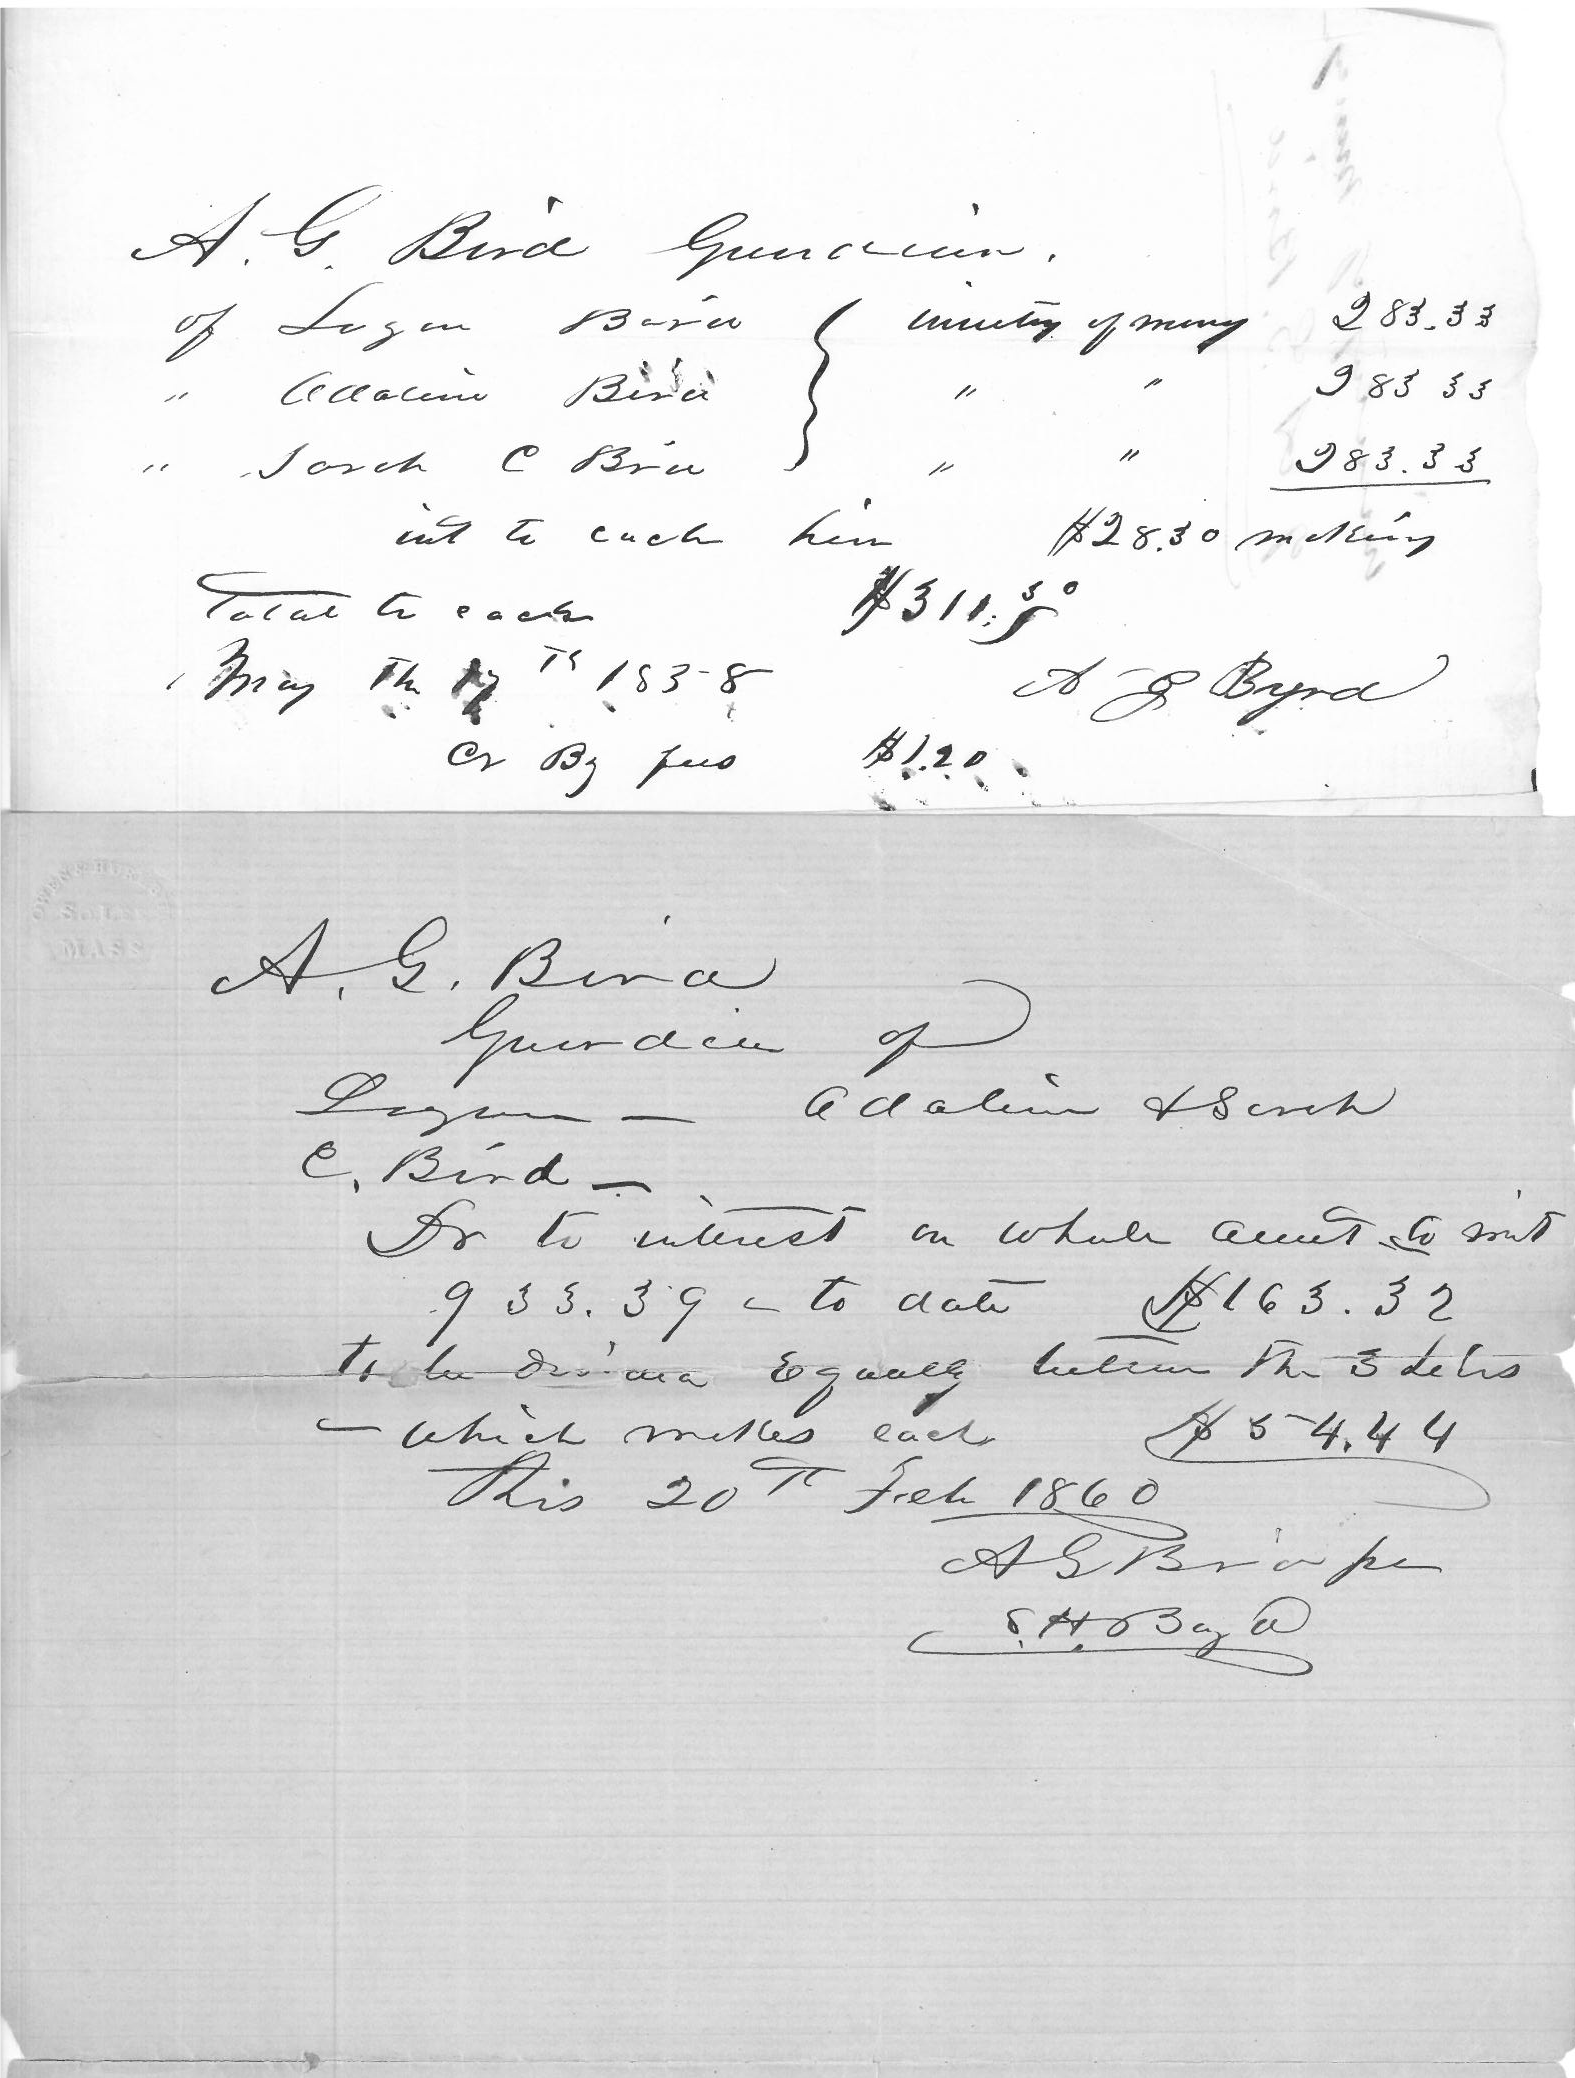 A. G. Bird Guardian.
of Logan Bird invetry of mony 283.33
" Adaline Bird " " 283 33
" Sarah C Bird " " 283.33
int to each heir $28.30 making
Total to each $311.30
May the 17 Th 1858 A G Byrd
Cr By fees $1.20
OWEN & HURLBUT
So. LEE
MASS
A. G. Bird
Guardian of
Logan — Adaline & Sarah
C. Bird —
Dr to interest on whole amt to wit
933.39 - to date $163.32
to be divided Equally between the 3
— which makes each $54.44
This 20th Feb 1860
A G Bird per
S. H. Boyd